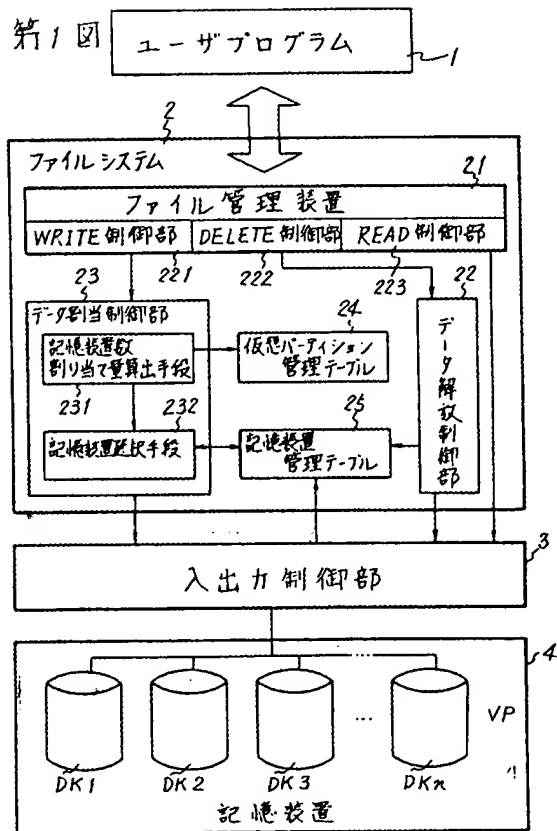 第1図
ユーザプログラム
1
2
ファイルシステム
21
ファイル管理装置
WRITE制御部 DELETE制御部 READ制御部
221 222 223
23
データ割当制御部
記憶装置数
割り当て量算出手段
231
232
記憶装置選択手段
24
仮想パーティション
管理テーブル
25
記憶装置
管理テーブル
22
データ解放制御部
3
入出力制御部
4
VP
DK1 DK2 DK3 … DKn
記憶装置